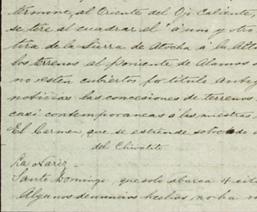 termine, al Oriente del Ojo Caliente,
se tira al cuadrar el a uno y otro
tira de la Sierra de Atocha a la Alta
los terrenos al poniente de Alamos
no esten cubiertos por titulo
noticias las concesiones de terrenos
casi contemporaneas a las nuestras
El Carmen, que se estiende
del Chivatito
Santo Domingo, que solo abarca 4 sitios
Algunos denuncios hechos, no ha